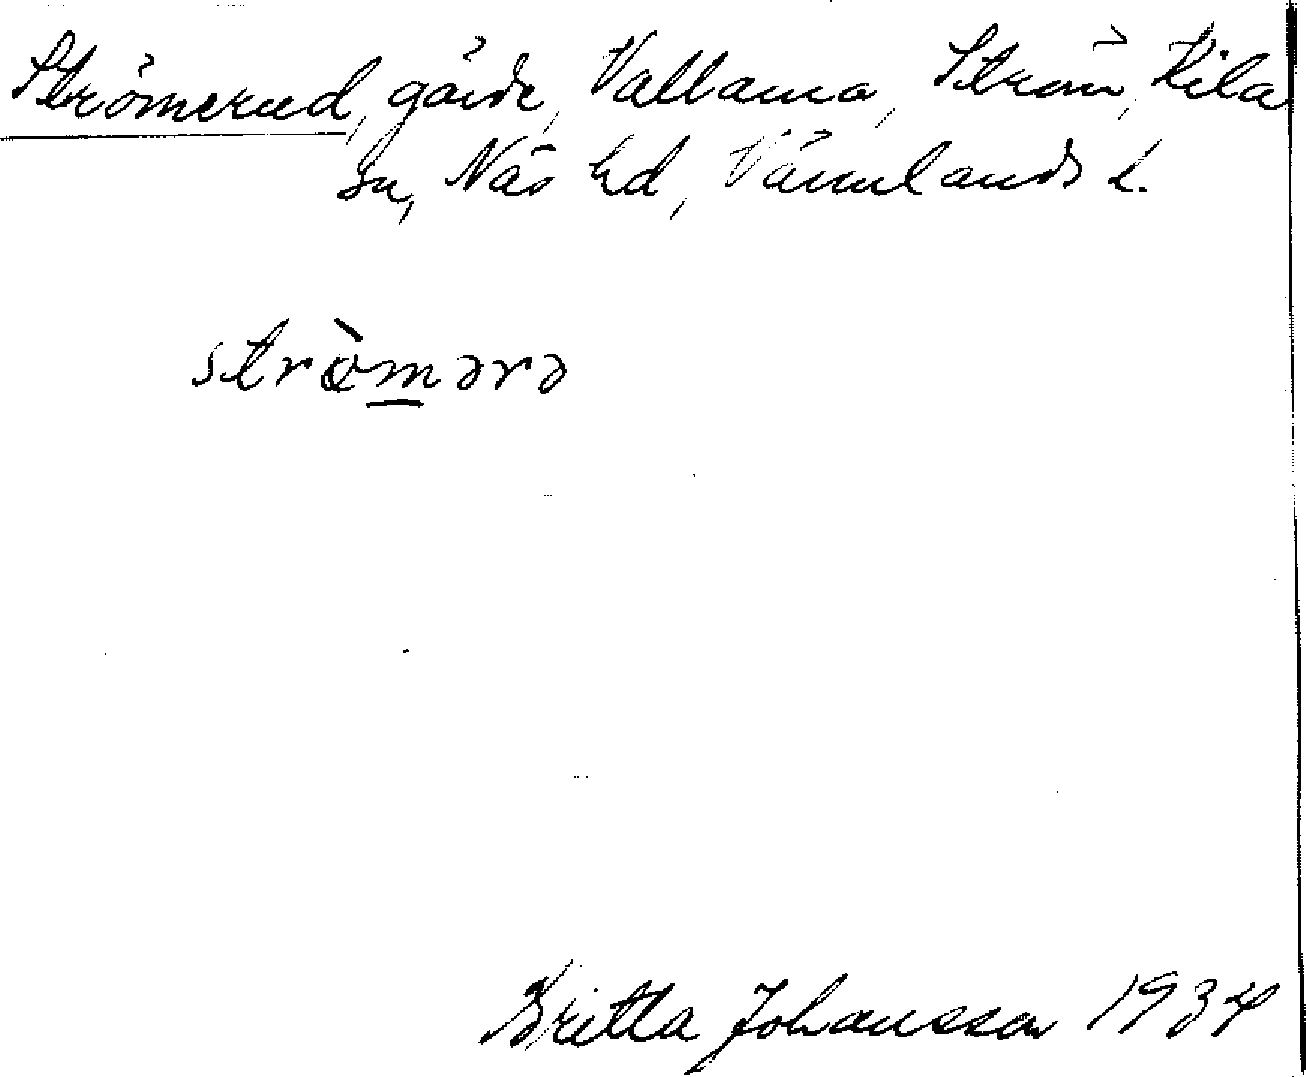 Strömerud, gärde, Vallarna, Ström, Kila
sn, Näs hd, Värmlands l.
strö̀m̲ərə
Britta Johansson 1934